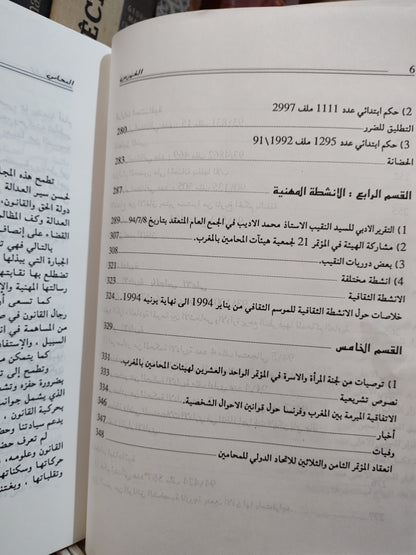 الفهرس 6
2) حكم ابتدائي عدد 1111 ملف 2997
التطليق للضرر 280
3) حكم ابتدائي عدد 1295 ملف 1992\91
الحضانة 283
القسم الرابع : الانشطة المهنية 287
1) التقرير الادبي للسيد النقيب الاستاذ محمد الاديب في الجمع العام المنعقد بتاريخ 94/7/8 289
2) مشاركة الهيئة في المؤتمر 21 لجمعية هيئات المحامين بالمغرب. 307
3) بعض دوريات النقيب. 308
4) انشطة مختلفة 321
الانشطة الثقافية 323
خلاصات حول الانشطة الثقافية للموسم الثقافي من يناير 1994 الى نهاية يونيه 1994.. 324
القسم الخامس 329
1) توصيات من لجنة المرأة والاسرة في المؤتمر الواحد والعشرين لهيئات المحامين بالمغرب.
نصوص تشريعية
الاتفاقية المبرمة بين المغرب وفرنسا حول قوانين الاحوال الشخصية.
أخبار 346
وفيات 347
انعقاد المؤتمر الثامن والثلاثين للاتحاد الدولي للمحامين 348
المحامي
تطمح هذه المجا
لحسن سير العدالة
دولة الحق والقانون.
القضاء على إنصاف
العدالة وكف المظال
بالتالي فهي
الجبارة التي يبذلها
تضطلع بها نقابتها
رسالتها المهنية والإ
كما تسعى أ
رجال القانون في
من المساهمة في
السبيل . والإستفاد
كما يتمكن م
وتطمح إلى ت
بضرورة حفزه وتش
الذي يشمل جوانب
بحركية القانون .
يدعم سيادتنا وحض
لم تعرف حض
القانون وعلومه. ل
حركاتها وسكناتها
وتقلباتها . ويغتني